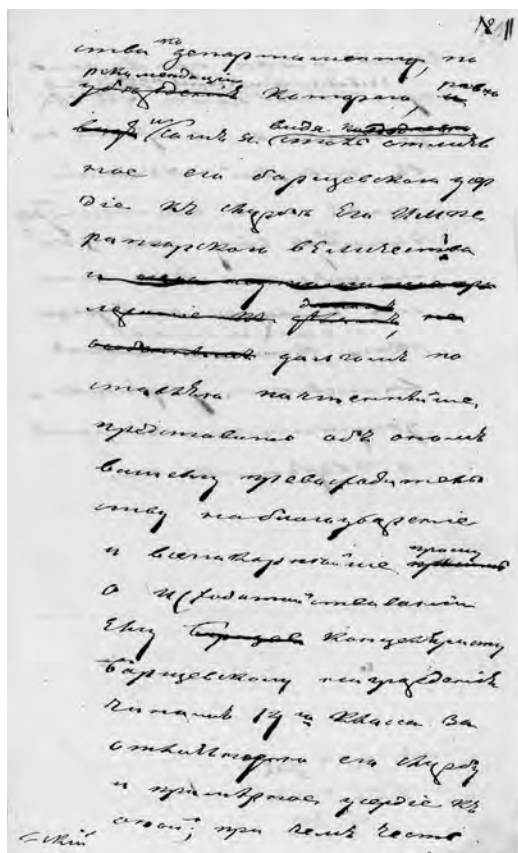 ства по департаменту, по
рекомендации
которого, равно
и самъ я видя отличь
ное его Барщевского усер
діе къ службѣ Его Импе
раторского величества
долгомъ по
ставляю почтеннѣйше
представить объ ономъ
вашему превосходитель
ству на благоуваженіе
и всепокорнѣйше прошу
о исходатайствованіи
ему канцеляристу
Барщевскому награжденія
чиномъ 14го класса за
его службу
и примѣрное усердіе къ
оной; при чемъ честь